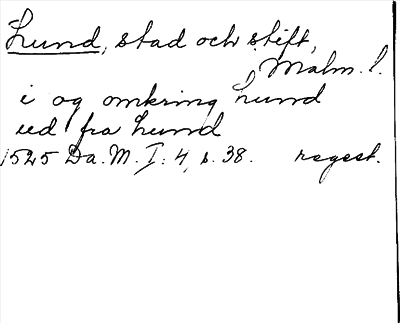 Lund, stad och stift,
Malm. l.
i og omkring Lund
ud fra Lund
1525 Da. M. I: 4, s. 38. regest.